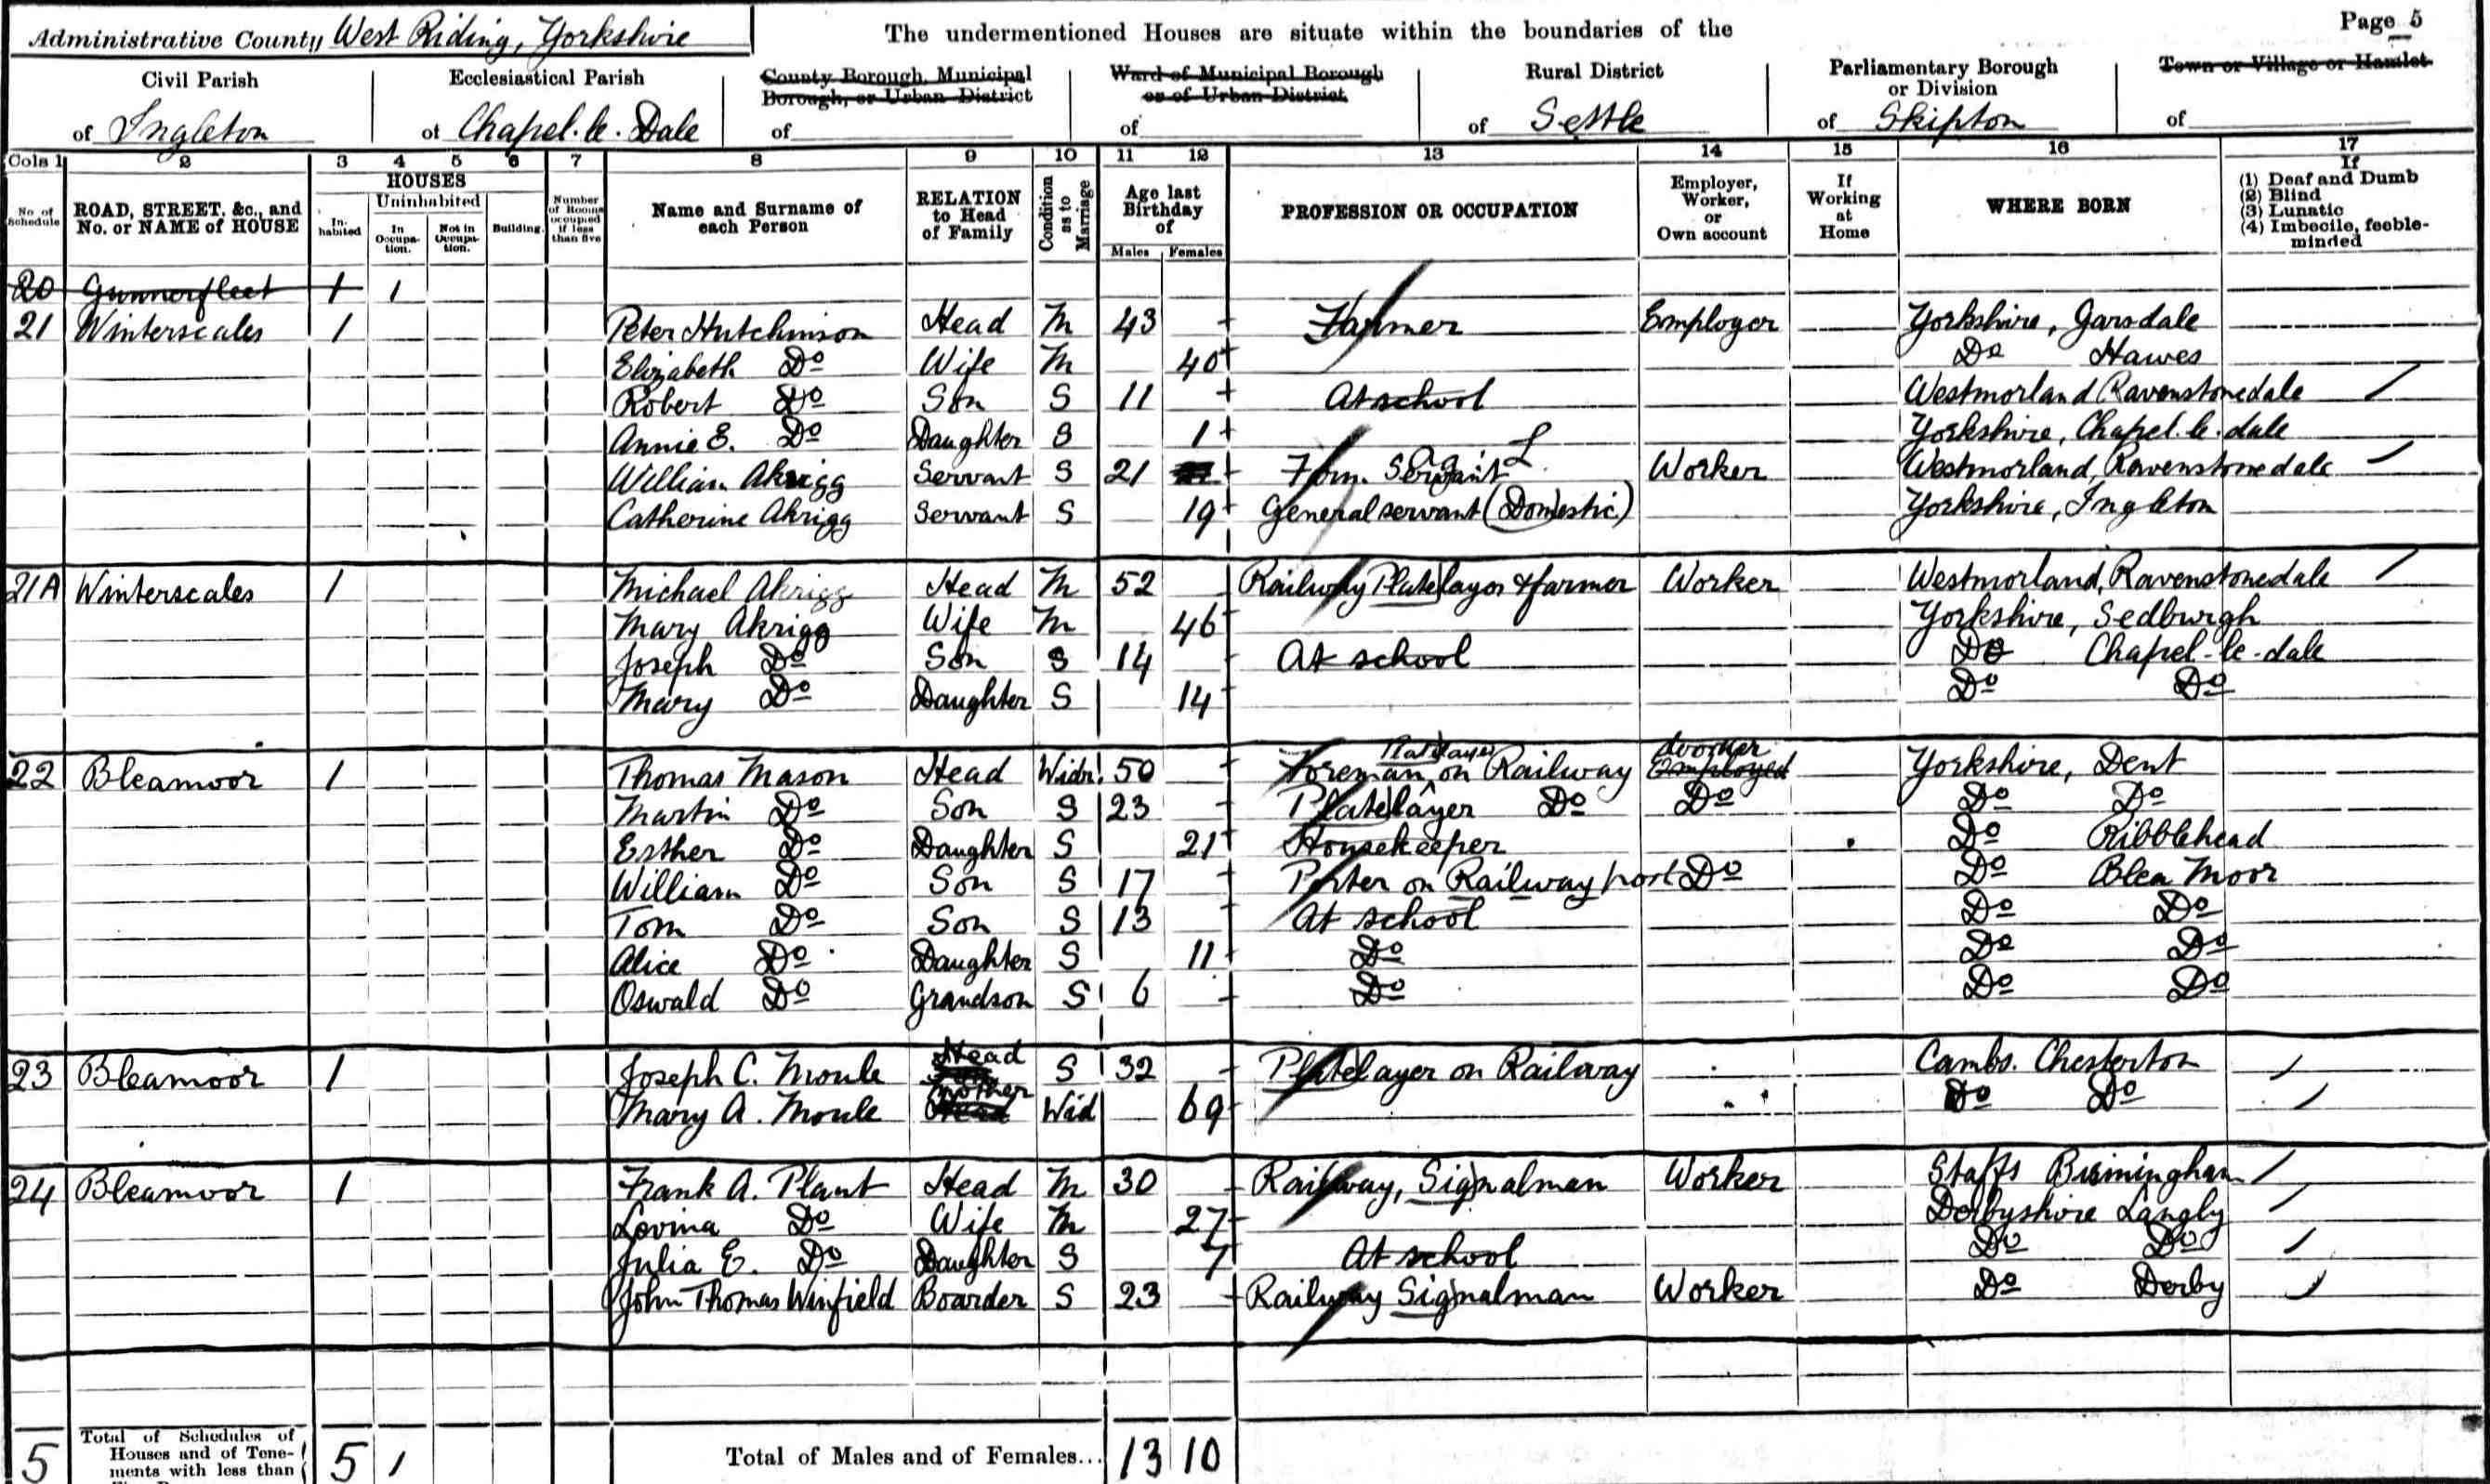 Page 5
Administrative County West Riding, Yorkshire
The undermentioned Houses are situate within the boundaries of the
Civil Parish of Ingleton
Ecclesiastical Parish of Chapel. le. Dale
County Borough, Municipal Borough, or Urban District of
Ward of Municipal Borough or of Urban District of
Rural District of Settle
Parliamentary Borough or Division of Skipton
Town or Village or Hamlet of
Cols 1 2 3 4 5 6 7 8 9 10 11 12 13 14 15 16 17
No. of Schedule
ROAD, STREET, &c., and No. or NAME of HOUSE
HOUSES
In-habited
Uninhabited
In Occupa-tion.
Not in Occupa-tion.
Building.
Number of Rooms occupied if less than five
Name and Surname of each Person
RELATION to Head of Family
Condition as to Marriage
Age last Birthday of
Males Females
PROFESSION OR OCCUPATION
Employer, Worker, or Own account
If Working at Home
WHERE BORN
If
(1) Deaf and Dumb
(2) Blind
(3) Lunatic
(4) Imbecile, feeble-minded
20 Gunnerfleet 1 1
21 Winterscales 1 Peter Hutchinson Head M 43 Farmer Employer Yorkshire, Garsdale
Elizabeth Do Wife M 40 Do Hawes
Robert Do Son S 11 At school Westmorland Ravenstonedale
Annie E. Do Daughter S 1 Yorkshire, Chapel. le. dale
William Akrigg Servant S 21 Farm. Servant Worker Westmorland, Ravenstonedale
Catherine Akrigg Servant S 19 General servant (Domestic) Yorkshire, Ingleton
21A Winterscales 1 Michael Akrigg Head M 52 Railway Platelayer & farmer Worker Westmorland, Ravenstonedale
Mary Akrigg Wife M 46 Yorkshire, Sedburgh
Joseph Do Son S 14 At school Do Chapel-le-dale
Mary Do Daughter S 14 Do Do
22 Bleamoor 1 Thomas Mason Head Widr. 50 Foreman Platelayer on Railway Worker Employed Yorkshire, Dent
Martin Do Son S 23 Platelayer Do Do Do Do
Esther Do Daughter S 21 Housekeeper Do Ribblehead
William Do Son S 17 Porter on Railway port Do Do Blea Moor
Tom Do Son S 13 At school Do Do
Alice Do Daughter S 11 Do Do Do
Oswald Do Grandson S 6 Do Do Do
23 Bleamoor 1 Joseph C. Moule Head S 32 Platelayer on Railway Cambs. Chesterton
Mary A. Moule Mother Head Wid 69 Do Do
24 Bleamoor 1 Frank A. Plant Head M 30 Railway, Signalman Worker Staffs Birmingham
Lovina Do Wife M 27 Derbyshire Langly
Julia E. Do Daughter S 7 At school Do Do
John Thomas Winfield Boarder S 23 Railway Signalman Worker Do Derby
5 Total of Schedules of Houses and of Tene-ments with less than 5 1 Total of Males and of Females... 13 10